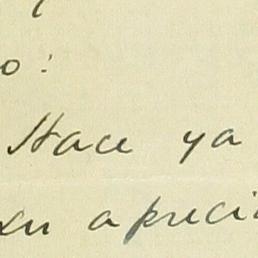 o:
Hace ya
su apreci